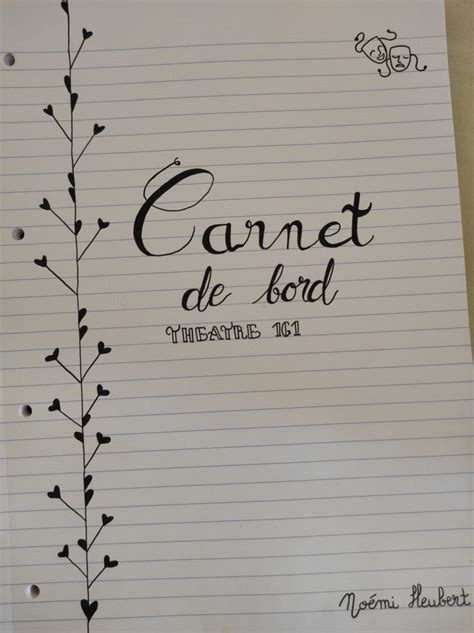 Carnet
de bord
THEATRE 161
Noémi Heubert